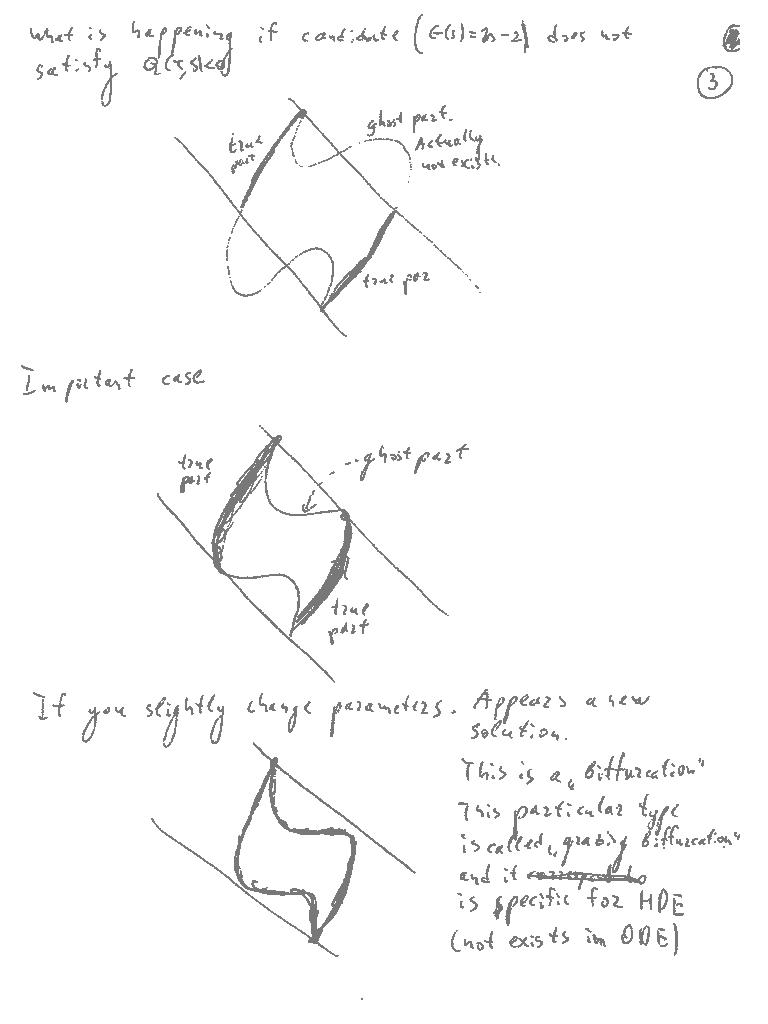 what is happening if candidate (G(s)=2s-2) does not
satisfy Q(τ,s)<0
3
true
part
ghost part.
Actually
not exists.
true par
Important case
true
part
ghost part
true
part
If you slightly change parameters. Appears a new
solution.
This is a „biffurcation"
This particular type
is called „grabing biffurcation"
and it
is specific for HDE
(not exists in ODE)